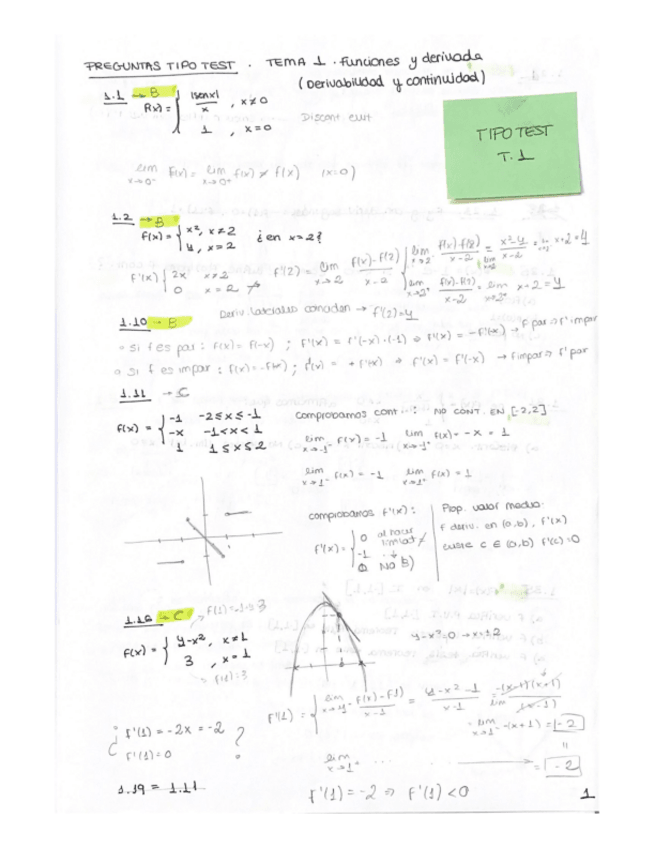 PREGUNTAS TIPO TEST . TEMA 1 . Funciones y derivada
(Derivabilidad y continuidad)
TIPO TEST
T.1
1.1 → B
f(x) = { |senx|/x , x≠0
1 , x=0
Discont. evit
lim x→0⁻ f(x) = lim x→0⁺ f(x) ≠ f(x) (x=0)
1.2 → B
f(x) = { x², x≠2
4, x=2
¿en x=2?
f'(x) { 2x x≠2
0 x=2
f'(2) = lim x→2 f(x)-f(2)/x-2
lim x→2⁻ f(x)-f(2)/x-2 = x²-4/x-2 = x+2 = 4
lim x→2⁺ f(x)-f(2)/x-2 = lim x→2⁺ x+2 = 4
Deriv. laterales coinciden → f'(2)=4
1.10 → B
∘ si f es par : f(x) = f(-x) ; f'(x) = f'(-x)·(-1) ⇒ f'(x) = -f'(-x) → f par ⇒ f' impar
∘ si f es impar : f(x) = -f(-x) ; f'(x) = + f'(-x) ⇒ f'(x) = f'(-x) → f impar ⇒ f' par
1.11 → C
f(x) = { -1 -2≤x≤-1
-x -1<x<1
1 1≤x≤2
comprobamos cont...: NO CONT. EN [-2,2]
lim x→-1⁻ f(x) = -1 lim x→-1⁺ f(x) = -x = 1
lim x→1⁻ f(x) = -1 lim x→1⁺ f(x) = 1
comprobamos f'(x) :
f'(x) = { 0
-1
0 NO B)
Prop. valor medio.
f deriv. en (a,b), f'(x)
c ∈ (a,b) f'(c)=0
1.16 → C
f(1)=-1+3
f(x) = { 4-x², x≠1
3 , x=1
f(1)=3
4-x²=0 → x=±2
f'(1) = { lim x→1⁻ f(x)-f(1)/x-1 = 4-x²-1/x-1 = lim -(x-1)(x+1)/(x-1)
= lim x→1⁻ -(x+1) = -2
lim x→1⁺ ... = -2
¿ f'(1) = -2x = -2
f'(1) = 0 ?
1.19 = 1.11
f'(1) = -2 ⇒ f'(1) < 0
1